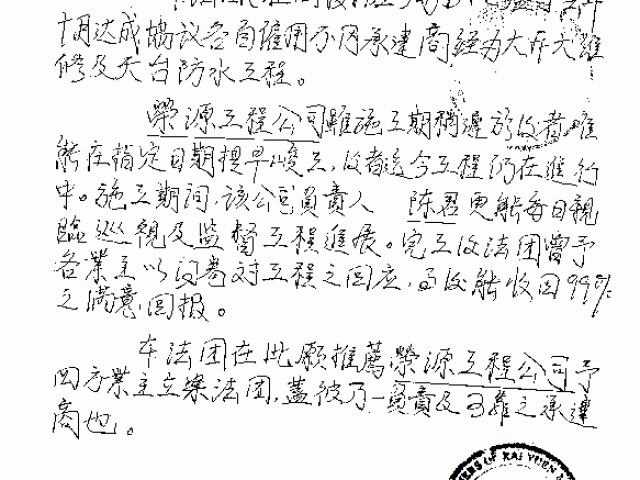 加達成協议各自雇用不同承建商經办大厈大維
修及天台防水工程。
榮源工程公司雖施工期稍遲於後者，唯
能在指定日期提早峻工，後者迄今工程仍在進行
中。施工期间，该公司負責人 陈君更能每日親
臨巡視及监督工程進展。完工後法团曾予
各業主以问卷对工程之回应，而後能收回99%
之满意回报。
本法团在此願推薦榮源工程公司予
四方業主立案法团，蓋彼乃一負責及可维之承建
商也。
OF KAI YUEN